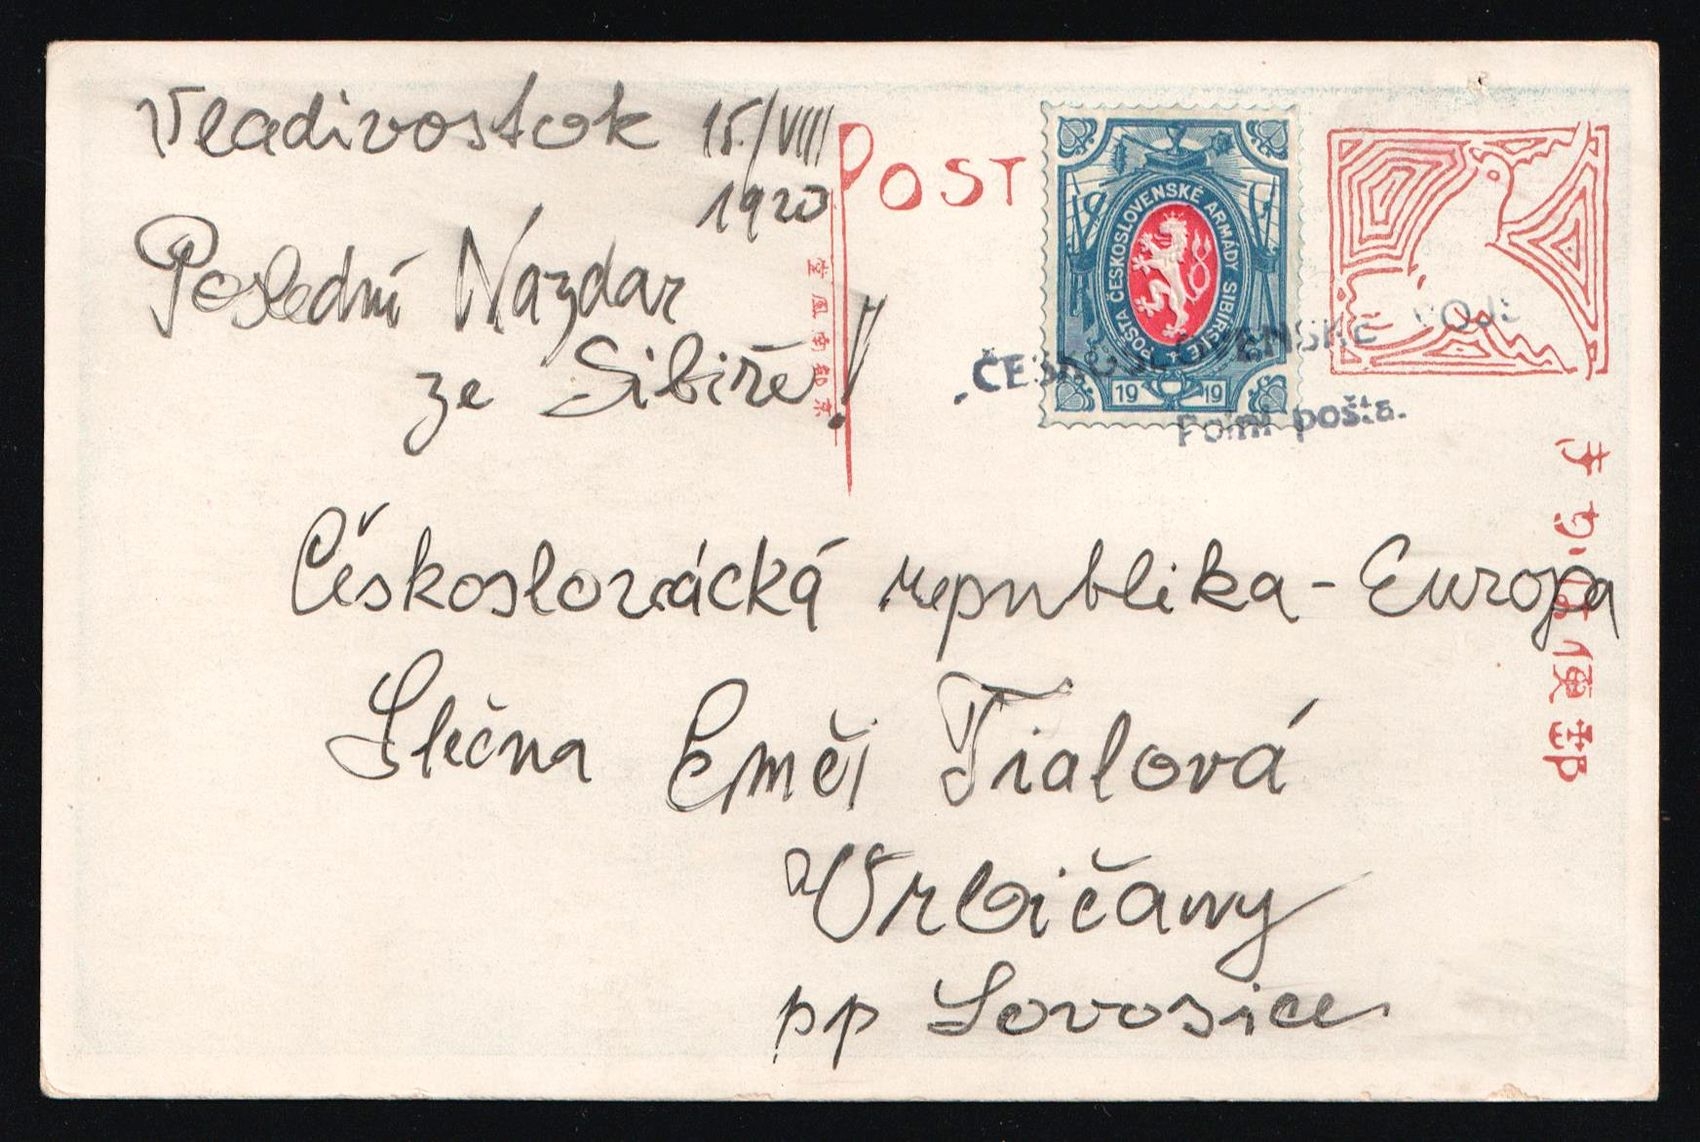 Vladivostok 15./VIII
1920
Poslední Nazdar
ze Sibiře!
POST
POŠTA ČESKOSLOVENSKÉ ARMÁDY SIBIŘSKÉ
19 19
ČESKOSLOVENSKÉ VOJ
Polní pošta.
京都南鳳堂
郵便はか゛き
Československá republika - Europa
Slečna Emči Fialová
Vrbičany
pp Lovosice